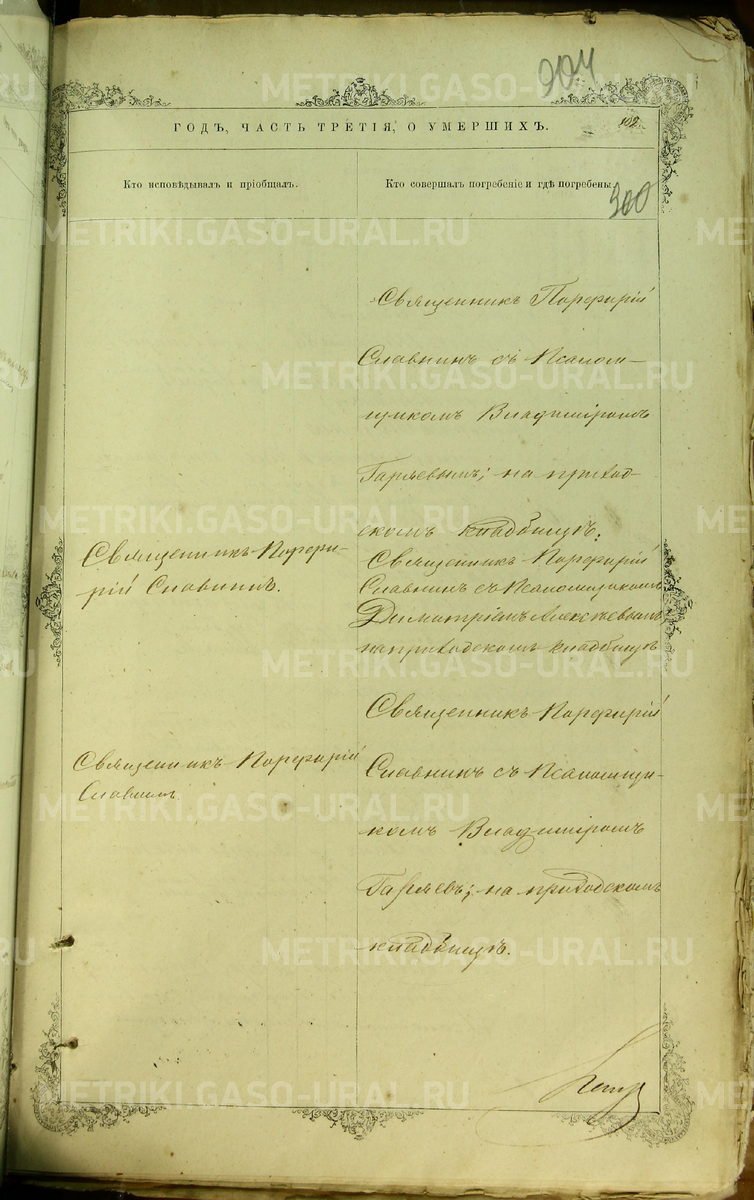 904
ГОДЪ, ЧАСТЬ ТРЕТІЯ, О УМЕРШИХЪ.
102
Кто исповѣдывалъ и пріобщалъ.
Кто совершалъ погребеніе и гдѣ погребены.
300
Священникъ Порфирій
Славнинъ съ Псалом-
щикомъ Владиміромъ
Гаряевымъ; на приход-
скомъ кладбищѣ.
Священникъ Порфи-
рій Славнинъ.
Священникъ Порфирій
Славнинъ съ Псаломщикомъ
Димитріемъ Алексѣевымъ
на приходскомъ кладбищѣ
Священникъ Порфирій
Славнинъ
Священникъ Порфирій
Славнинъ съ Псаломщи-
комъ Владиміромъ
Гаряевъ; на приходскомъ
кладбищѣ.
METRIKI.GASO-URAL.RU